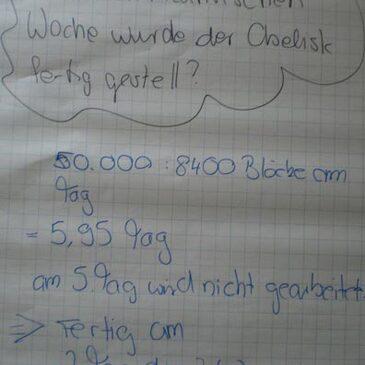 Woche wurde der Obelisk
fertig gestell?
50.000 : 8400 Blöcke am
Tag
= 5,95 Tag
am 5 Tag wird nicht gearbeitet
=> Fertig am